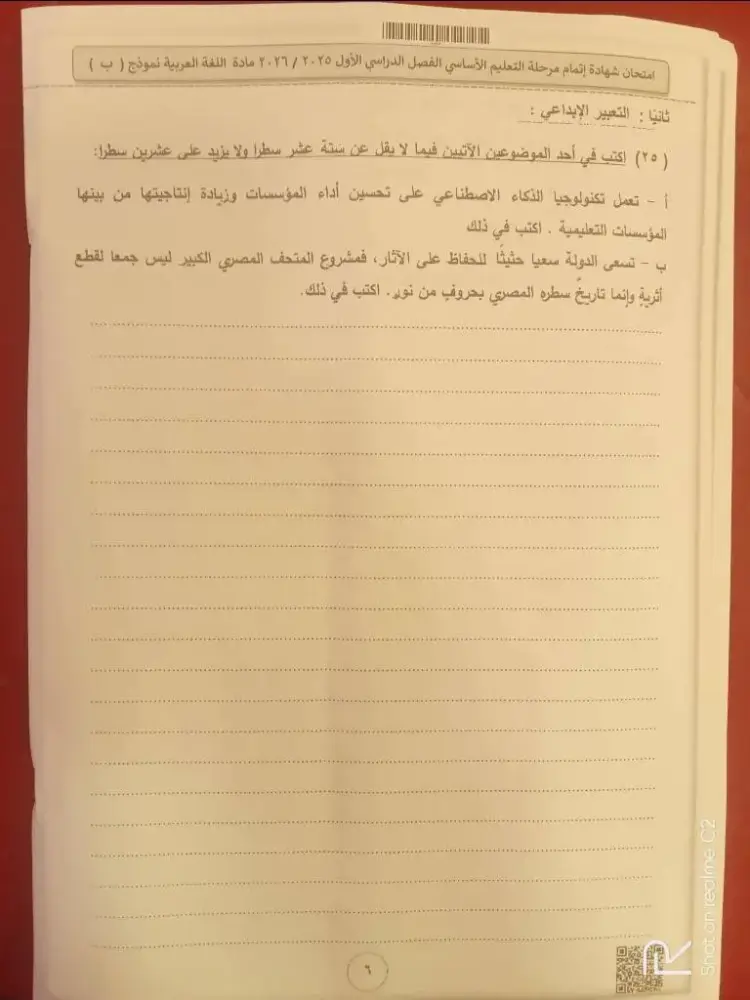 امتحان شهادة إتمام مرحلة التعليم الأساسي الفصل الدراسي الأول ٢٠٢٥ / ٢٠٢٦ مادة اللغة العربية نموذج ( ب )
ثانيًا : التعبير الإبداعي :
( ٢٥ ) اكتب في أحد الموضوعين الآتيين فيما لا يقل عن ستة عشر سطرا ولا يزيد على عشرين سطرا:
أ - تعمل تكنولوجيا الذكاء الاصطناعي على تحسين أداء المؤسسات وزيادة إنتاجيتها من بينها
المؤسسات التعليمية . اكتب في ذلك
ب - تسعى الدولة سعيا حثيثًا للحفاظ على الآثار، فمشروع المتحف المصري الكبير ليس جمعا لقطع
أثريةٍ وإنما تاريخٌ سطره المصري بحروفٍ من نورٍ. اكتب في ذلك.
٦
Shot on realme C2